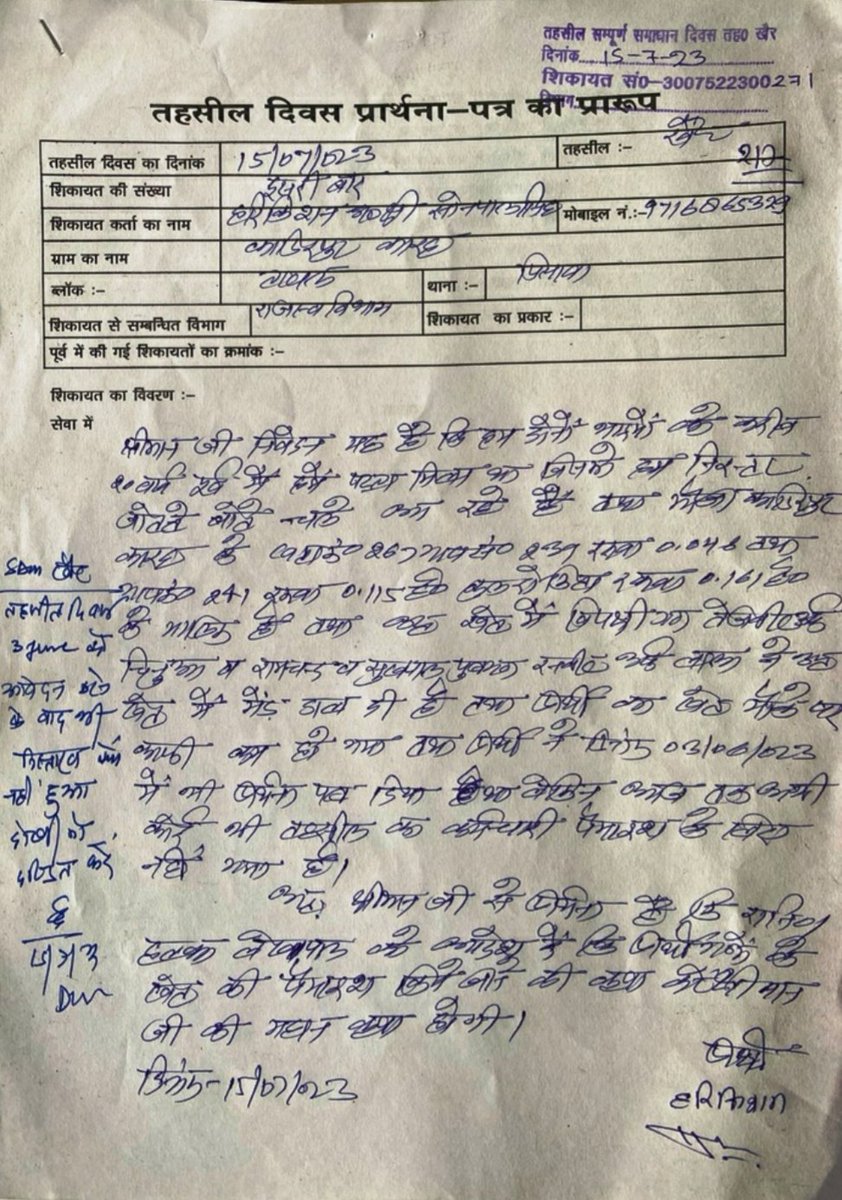 तहसील सम्पूर्ण समाधान दिवस तह0 खैर
दिनांक 15-7-23
शिकायत सं0-3007522300271
तहसील दिवस प्रार्थना-पत्र का प्रारूप
तहसील दिवस का दिनांक 15/07/023 तहसील :- खैर
शिकायत की संख्या दूसरी बार
शिकायत कर्ता का नाम हरिकिशन सोनपाल सिंह मोबाइल नं.:-
ग्राम का नाम कादिरपुर
ब्लॉक :- थाना :- पिसावा
शिकायत से सम्बन्धित विभाग राजस्व विभाग शिकायत का प्रकार :-
पूर्व में की गई शिकायतों का क्रमांक :-
शिकायत का विवरण :-
सेवा में
श्रीमान जी निवेदन यह है कि हम दोनों भाइयों के करीब
वर्ष पूर्व में हमें पट्टा मिला था जिसको हम निरन्तर
जोतते बोते चले आ रहे हैं तथा मौजा कादिरपुर
के 267 239 रकवा 0.046 तथा
241 रकवा 0.115 है0 रकवा 0.161 है0
के मालिक हैं तथा उक्त खेत में विपक्षी गण
व रामचन्द्र व ने उक्त
खेत में मेंड़ डाल दी है तथा प्रार्थी का खेत मौके पर
काफी कम हो गया तथा प्रार्थी ने दिनांक 03/06/023
में भी प्रार्थना पत्र दिया था लेकिन आज तक अभी
कोई भी तहसील का कर्मचारी पैमाइश के लिए
नहीं गया है।
अतः श्रीमान जी से प्रार्थना है कि
हल्का लेखपाल को आदेश दें कि प्रार्थीगणों के
खेत की पैमाइश किये जाने की कृपा करें श्रीमान
जी की महान कृपा होगी।
दिनांक-15/07/023
प्रार्थी
हरिकिशन
SDM खैर
तहसील दिवस
3 June को
आवेदन करने
के बाद भी
निस्तारण
नहीं हुआ
दोषी को
दण्डित करें